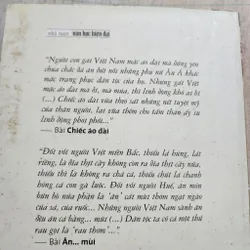 nhã nam văn học hiện đại
"Người con gái Việt Nam mặc áo dài mà bỗng yêu
chưa chắc là ăn đứt nói những phụ nữ Âu Á khác
mặc trang phục dân tộc của họ. Nhưng gái Việt
mặc áo dài mà hả, mà mừng, thì lình lòng khó ai bì
(...) Chiếc áo dài vừa theo sát những nét tuyệt mỹ
của thân người, lại vừa thêm cho tấm thân ấy sự
linh động phơi phới..."
— Bài Chiếc áo dài
"Đối với người Việt miền Bắc, thiếu lá hiếng, lát
riềng, là đĩa thịt cầy không còn ra đĩa thịt cầy nữa,
thiếu thì là không ra chả cá, thiếu chút lá chanh
không còn là con gà luộc. Đối với người Huế, ăn món
hến trứ danh một phần lại là 'ăn' cái mát thơm ngọt ngào
của sả, của ruốc... Những người Việt Nam sành ăn
đều ăn cả bằng... mũi (...) Dân tộc ta có cả một thứ
rau gọi là 'rau thơm'..."
— Bài Ăn... mùi